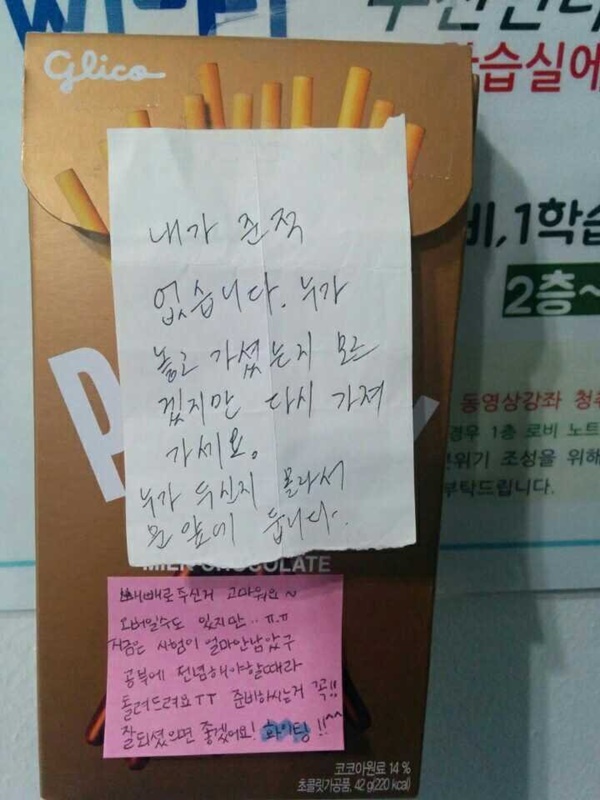 Glico
습실에
비,1학습
2층~
내가 준적
없습니다. 누가
놓고 가셨는지 모르
겠지만 다시 가져
가세요.
누가 두신지 몰라서
문 앞에 둡니다.
동영상강좌 청취
경우 1층 로비 노트
분위기 조성을 위해
부탁드립니다.
MILK CHOCOLATE
빼빼로 두신거 고마워요~
오버일수도 있지만..ㅠ.ㅠ
지금은 시험이 얼마안남았구
공부에 전념해야할때라
돌려드려요ㅜㅜ 준비하시는거 꼭!!
잘되셨으면 좋겠어요! 화이팅!!^^
코코아원료 14 %
초콜릿가공품, 42 g(220 kcal)